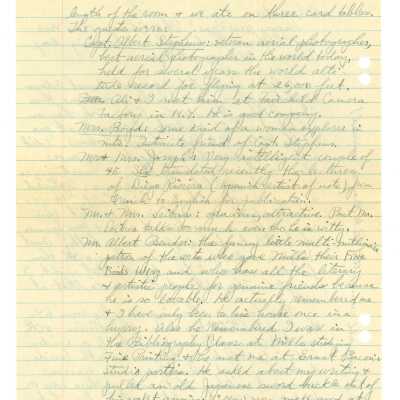 length of the room & we ate on three card tables.
The guests were:
Capt. Albert Stephens: veteran aerial photographer,
best aerial photographer in the world today,
held for several years the world alti-
tude record for flying at 26,000 feet.
Ali & I met him at Fairchild Camera
factory in N.Y. He is good company.
Mrs. Boyd: some kind of a woman explorer in
Intimate friend of Capt. Stephens.
Mr & Mrs. Joseph: Very intelligent couple of
45. She translated recently the lectures
of Diego Rivera (Spanish artist of note) from
French to English for publication.
Mr. & Mrs. : attractive. Paul
talks to much even tho he is witty.
Mr. Albert Bender: the funny little multi-millionaire
patron of the arts who gave Mills their Fine
Books Wing and who has all the literary
& artistic people for genuine friends because
he is so lovable. He actually remembered me
& I have only been to his house once in a
. Also he remembered I was in
the Bibliography Class at Mills studying
Fine Printing & who met me at
Studio parties. He asked about my writing &
pulled an old Japanese sword buckle out of